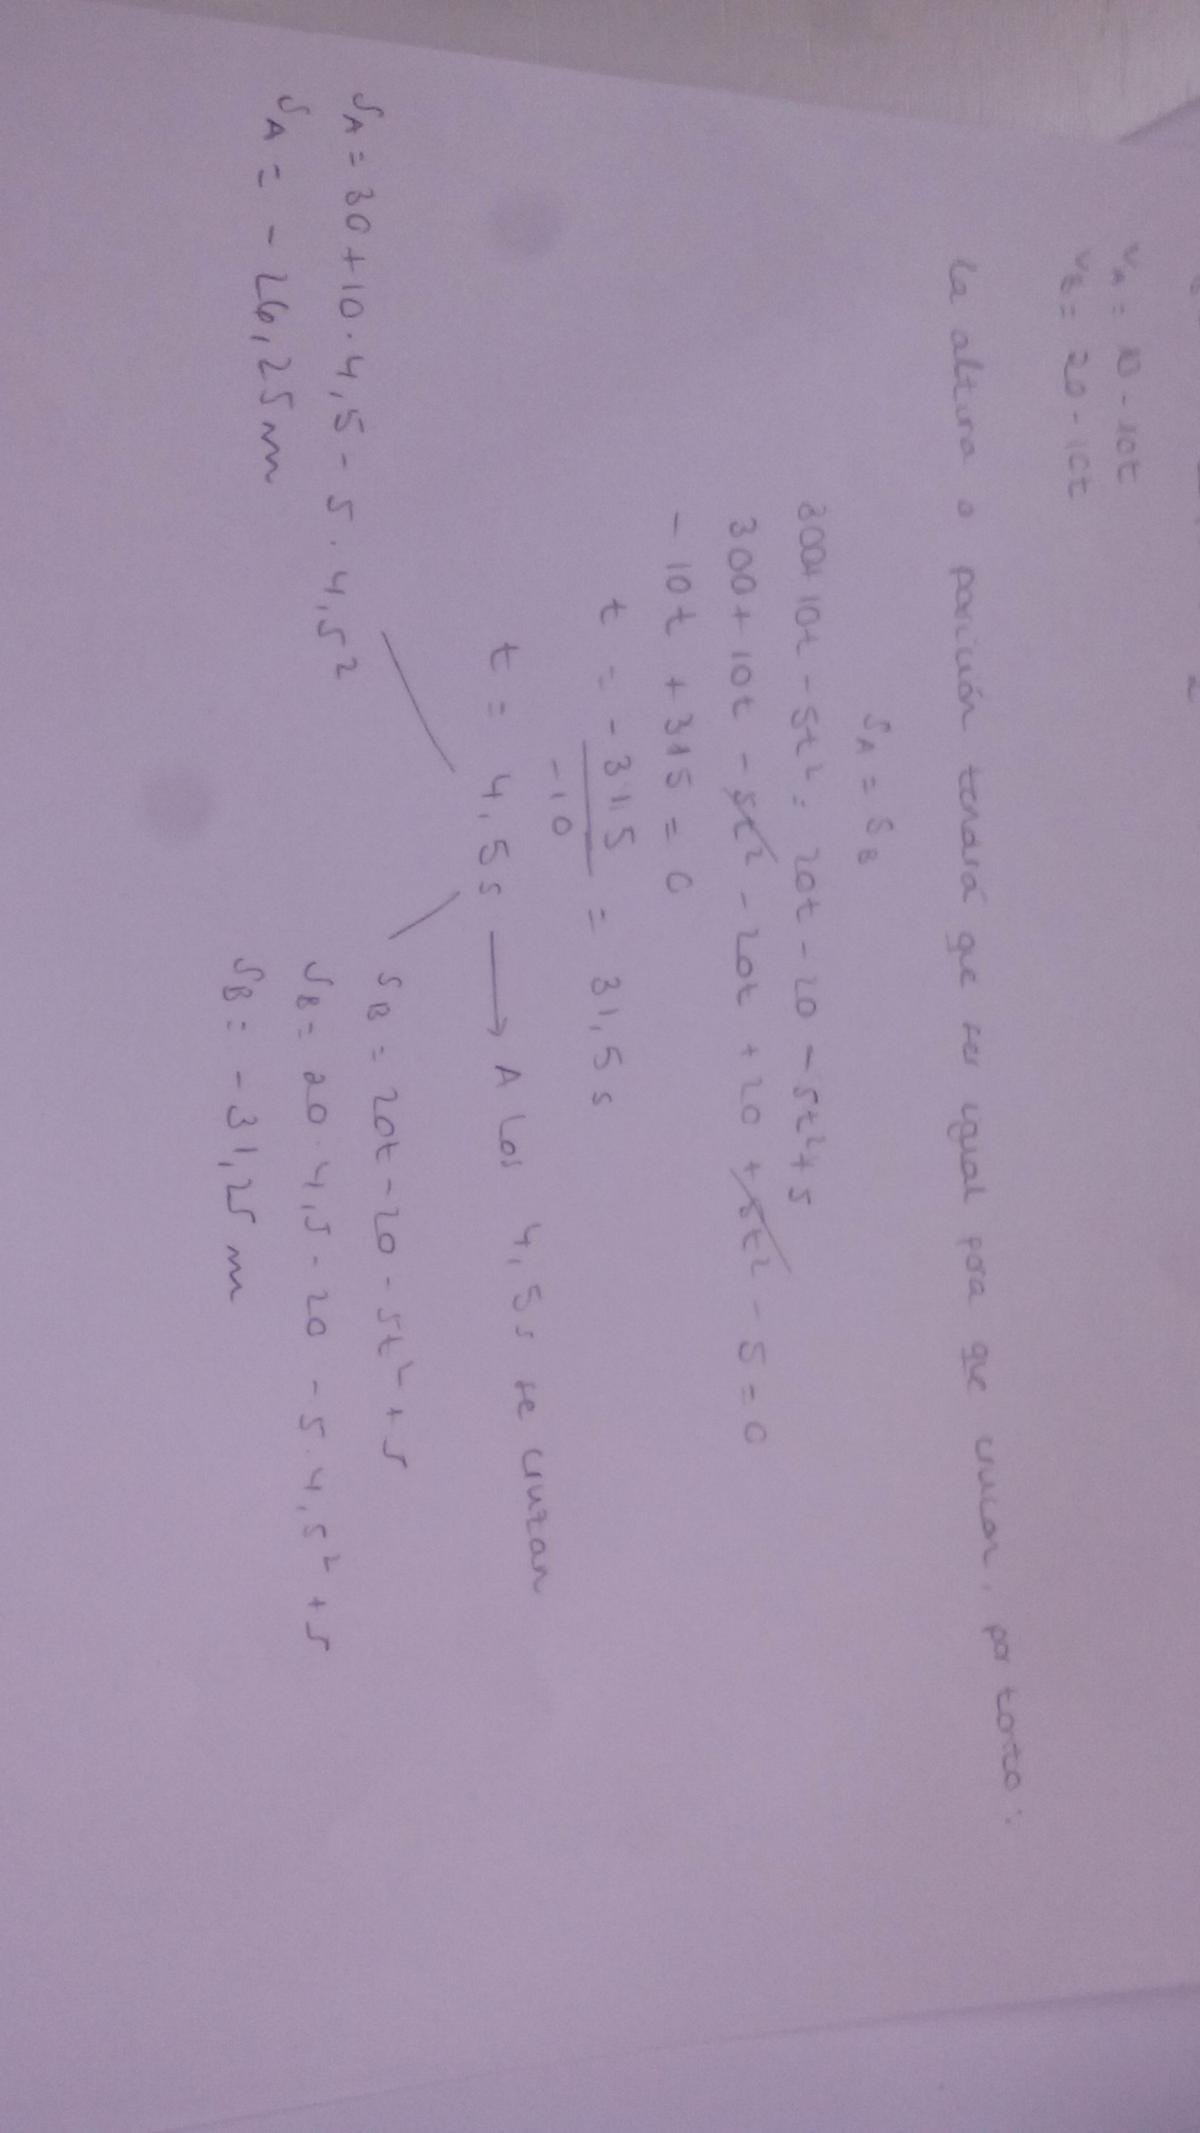 V_A = 10 - 10t
V_B = 20 - 10t
La altura o posición tendrá que ser igual para que crucen, por tanto:
S_A = S_B
300+10t - 5t² = 20t - 20 - 5t² + 5
300 + 10t - 5t² - 20t + 20 + 5t² - 5 = 0
- 10t + 315 = 0
t = -315/-10 = 31,5 s
t = 4,5 s → A los 4,5 s se cruzan
S_A = 30 + 10 · 4,5 - 5 · 4,5²
S_A = - 26,25 m
S_B = 20t - 20 - 5t² + 5
S_B = 20 · 4,5 - 20 - 5 · 4,5² + 5
S_B = - 31,25 m